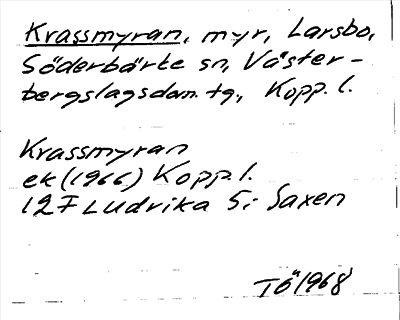 Krassmyran, myr, Larsbo,
Söderbärke sn, Väster-
bergslagsdom. tg., Kopp. l.
Krassmyran
ek (1966) Kopp. l.
12F Ludvika 5i Saxen
TÖ 1968